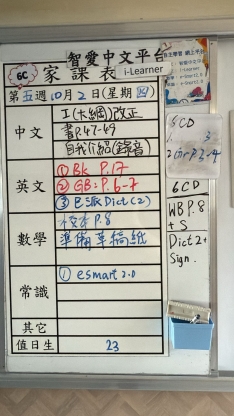 智愛中文平台
6C 家課表 i-Learner
第五週10月2日(星期四)
中文
工(大綱)改正
書P.47-49
自我介紹(錄音)
英文
① Bk P.17
② GB: P.6-7
③ 已派Dict(2)
數學
校本P.8
準備草稿紙
常識
① esmart 2.0
其它
值日生
23
6CD
3
6CD
WB P.8
+ S
Dict 2+
Sign.